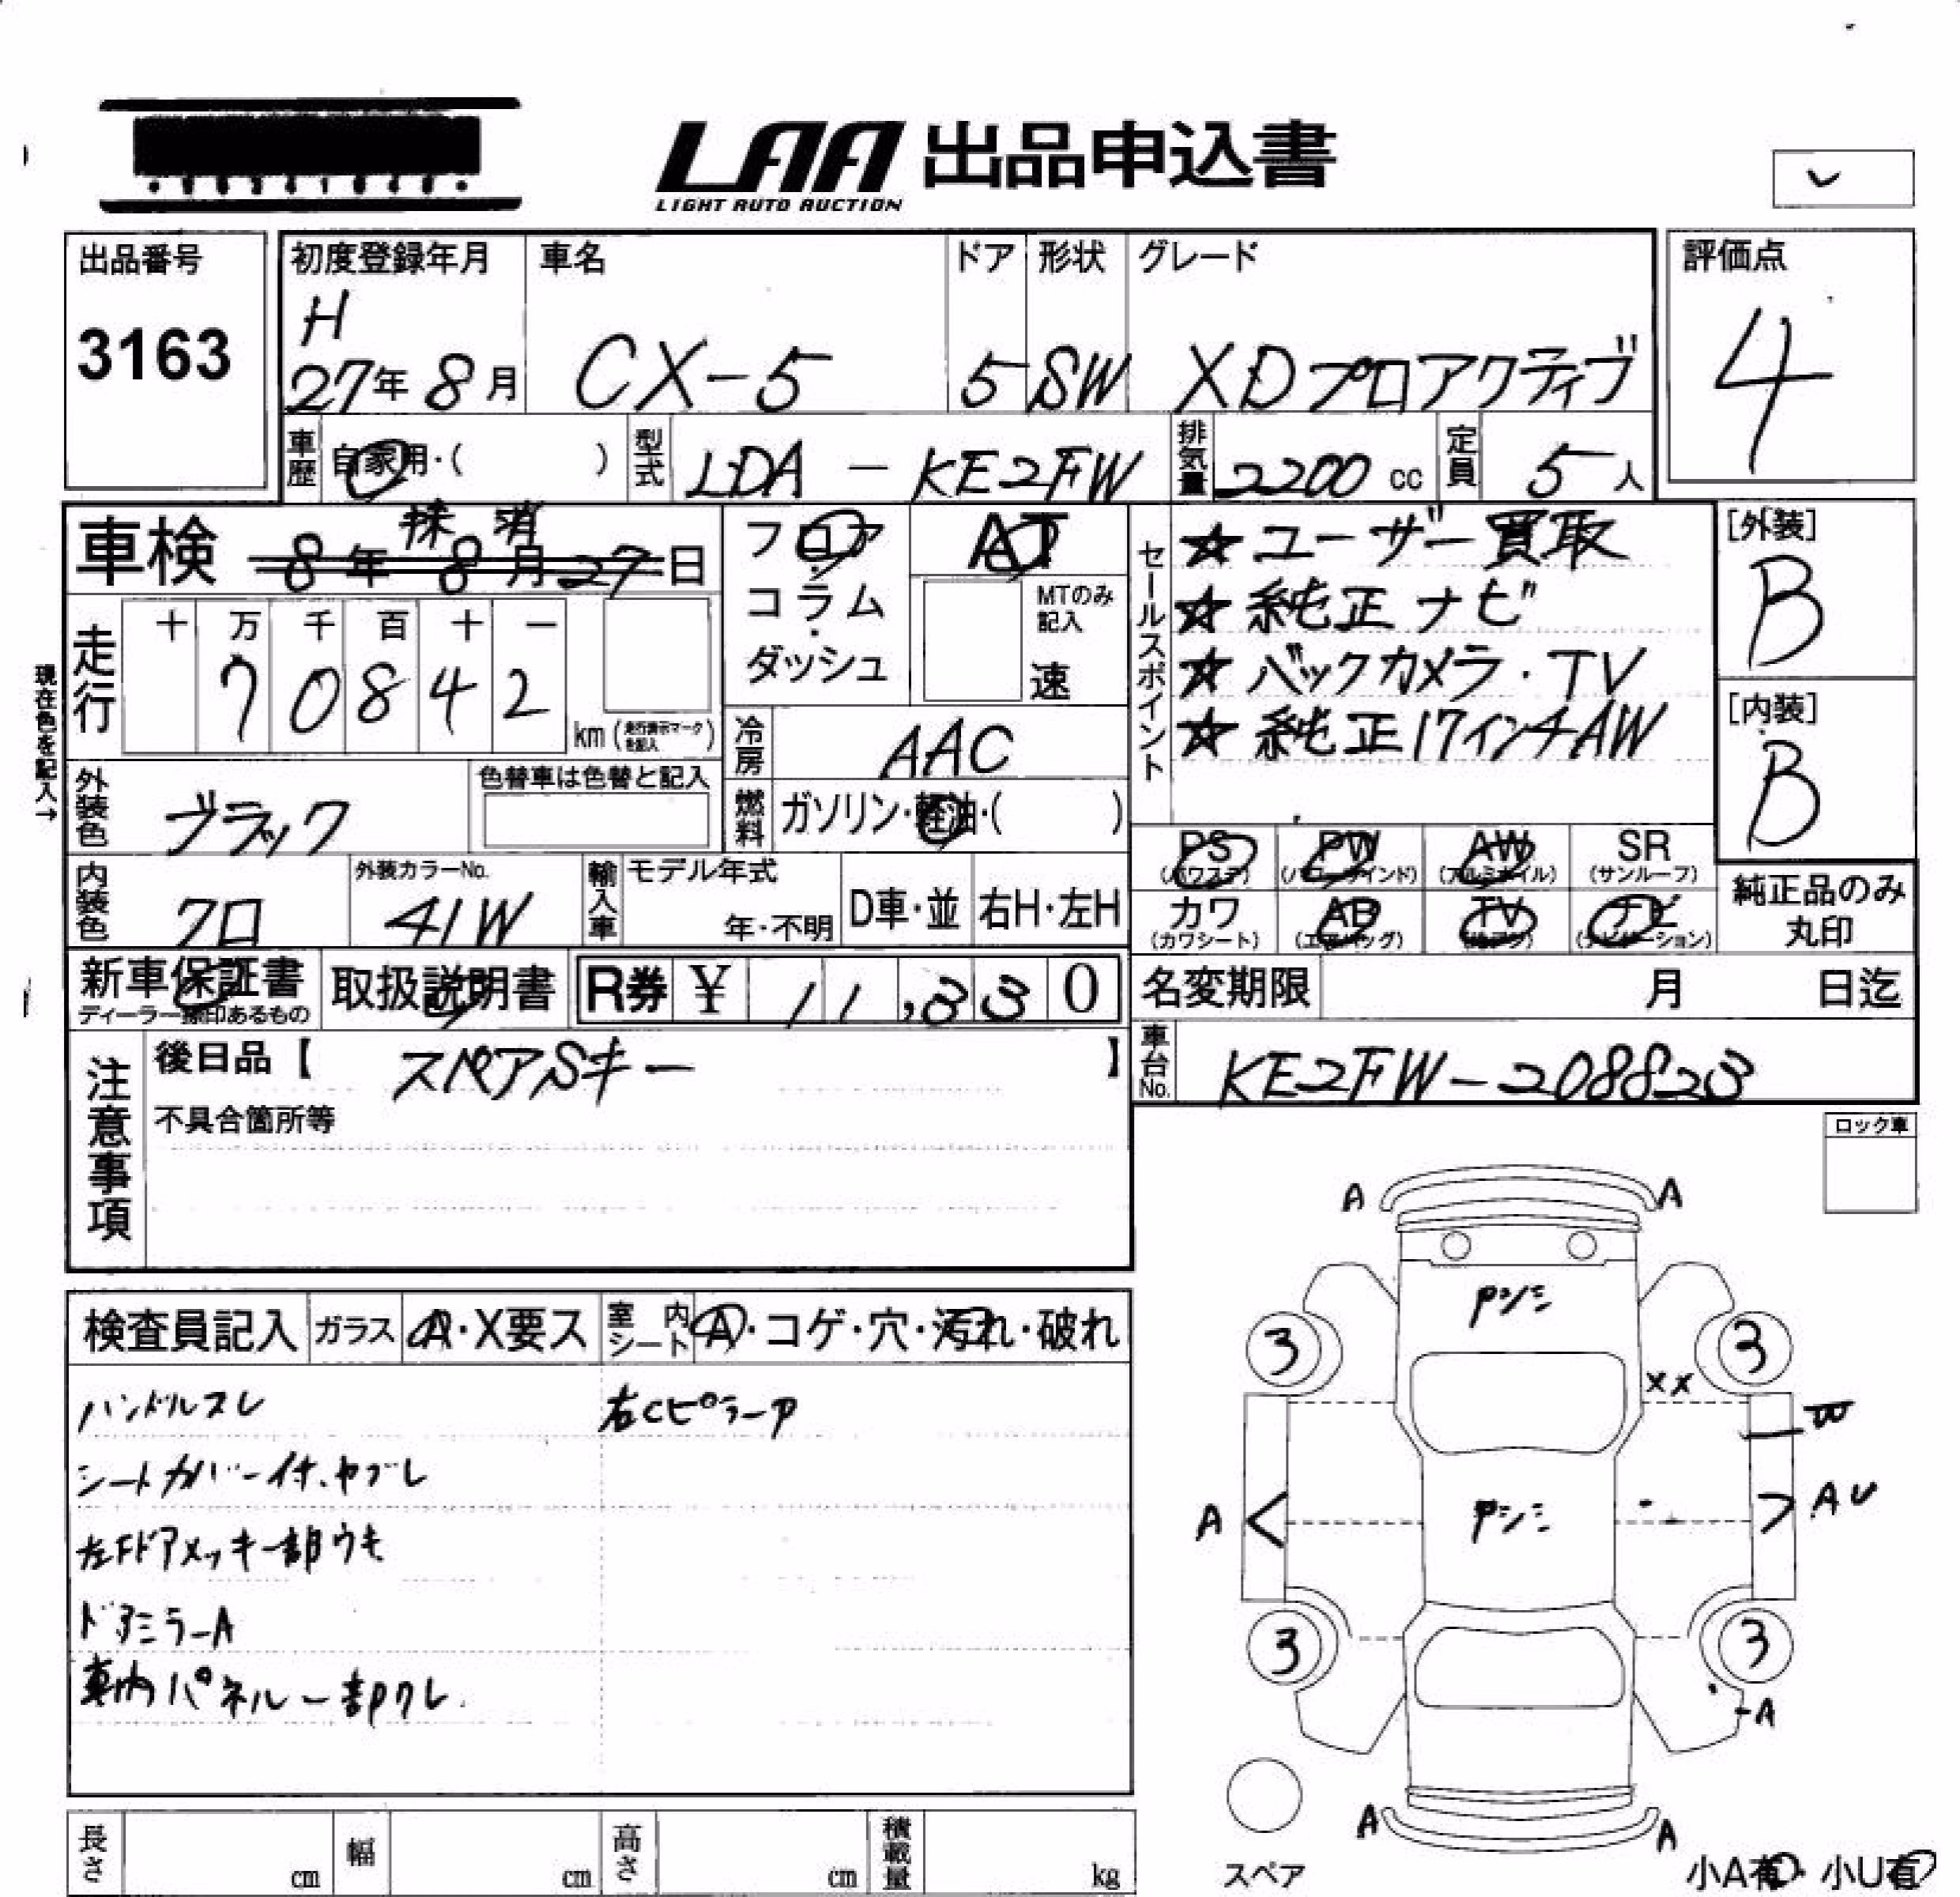 LAA 出品申込書
LIGHT AUTO AUCTION
出品番号
3163
初度登録年月
H
27年 8月
車名
CX-5
ドア
5
形状
SW
グレード
XDプロアクティブ
評価点
4
車歴
自家用・( )
型式
LDA - KE2FW
排気量
2200 cc
定員
5人
車検
抹消
8年 8月 27日
フロア
コラム
・
ダッシュ
AT
MTのみ
記入
速
セールスポイント
☆ ユーザー買取
☆ 純正ナビ
☆ バックカメラ・TV
☆ 純正17インチAW
[外装]
B
[内装]
B
現在色を記入→
走行
十 万 千 百 十 一
7 0 8 4 2
km (走行表示マークを記入)
冷房
AAC
外装色
ブラック
色替車は色替と記入
燃料
ガソリン・軽油・( )
PS
(パワステ)
PW
(パワーウインド)
AW
(アルミホイル)
SR
(サンルーフ)
カワ
(カワシート)
AB
(エアバッグ)
TV
ナビ
(ナビゲーション)
純正品のみ
丸印
内装色
クロ
外装カラーNo.
41W
輸入車
モデル年式
年・不明
D車・並
右H・左H
新車保証書
ディーラー捺印あるもの
取扱説明書
R券 ¥ 11,330
名変期限
月 日迄
車台No.
KE2FW-208823
注意事項
後日品【 スペアSキー 】
不具合箇所等
ロック車
検査員記入
ガラス
A・X要ス
室内
シート
A・コゲ・穴・汚れ・破れ
ハンドルスレ
右CピラーP
シートカバー付、ヤブレ
左Fドアメッキ一部ウキ
ドアミラーA
車内パネル一部クレ
A A
Pシミ
3 3
XX
W
A
Pシミ
AU
3 3
A
A A
スペア
小A有・小U有
長さ
cm
幅
cm
高さ
cm
積載量
kg